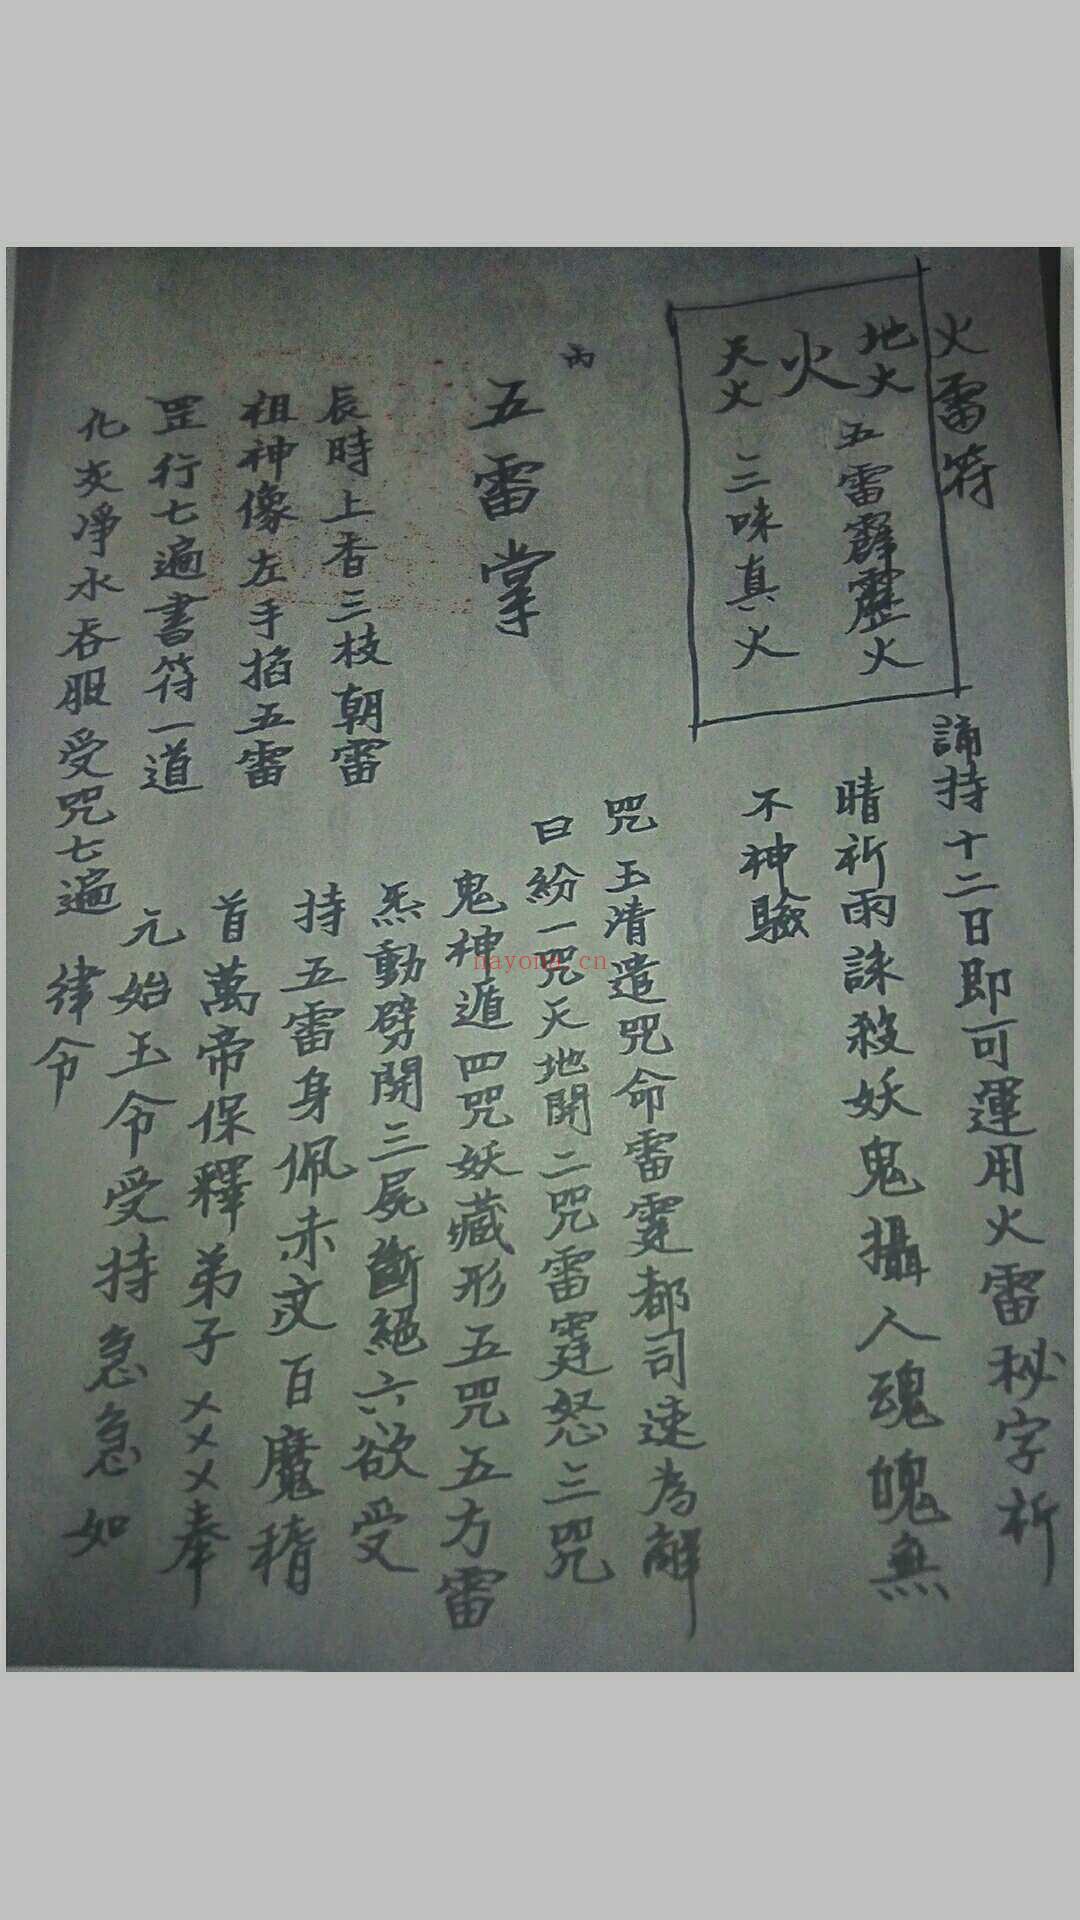 火雷符
地火 五雷霹靂火
火
天火 三味真火
誦持十二日即可運用火雷秘字祈
晴祈雨誅殺妖鬼攝人魂魄無
不神驗
雨
五雷掌
辰時上香三枝朝雷
祖神像左手掐五雷
罡行七遍書符一道
化灰凈水吞服受咒七遍
咒 玉清遣咒命雷霆都司速為解
曰紛一咒天地開二咒雷霆怒三咒
鬼神遁四咒妖藏形五咒五方雷
炁動劈開三屍斷絕六欲受
持五雷身佩赤文百魔稽
首萬帝保釋弟子乂乂乂奉
元始玉令受持急急如
律令
nayona.cn